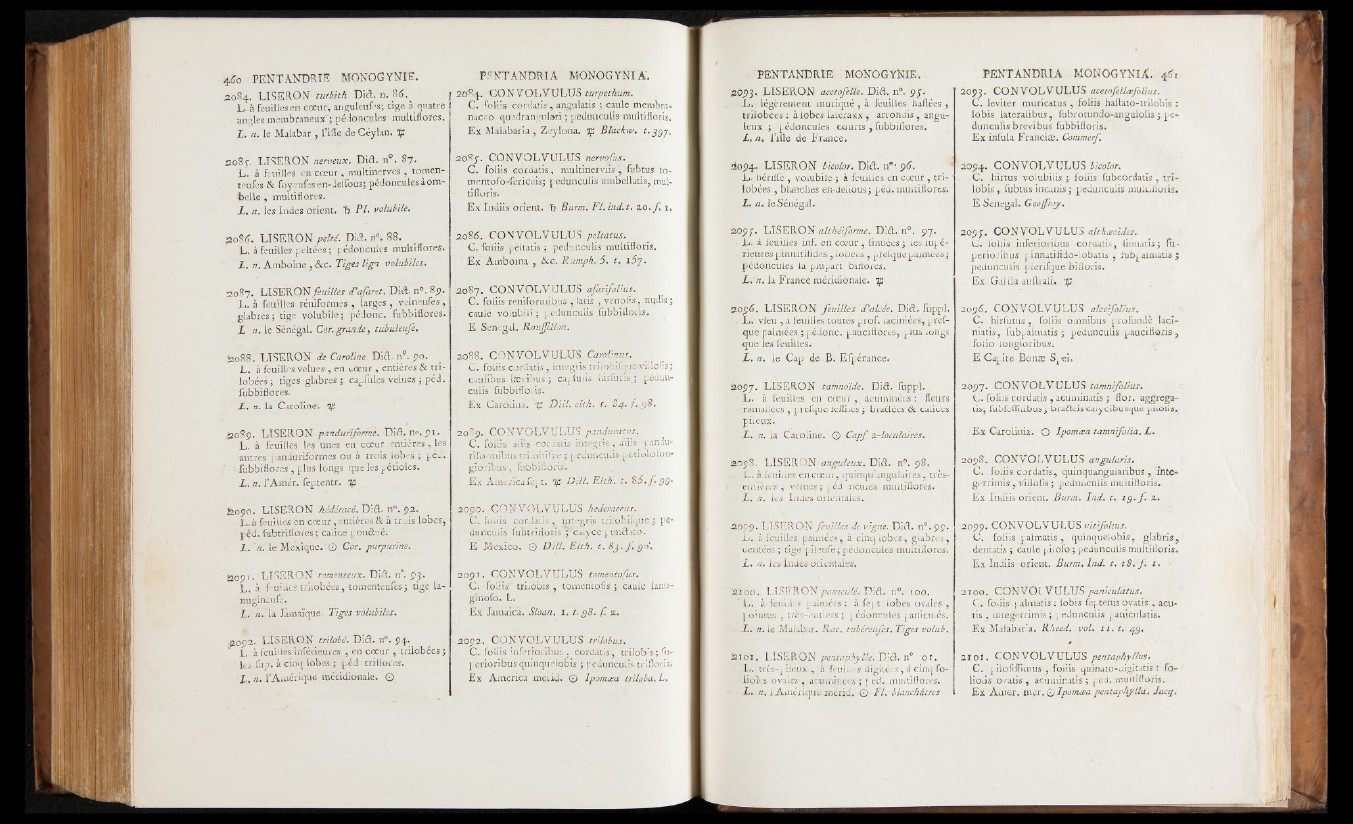 460 PENTANDRIE MONOGYNIE.
2084. LISERON turbith. Dict. n. 86.
L. à feuilles en cœur, anguleuſes; tige à quatre
angles membraneux; pédoncules multiflores.
L. n. le Malabar, l'iſle de Céylan. ♃
2085. LISERON nerveux. Dict. n°. 87.
L. à feuilles en cœur, multinerves, tomen-
teuſes & ſoyeuſes en-deſſous; pédoncules à om-
belle, multiflores.
L. n. les Indes orient. ♄ Pl. volubile.
2086. LISERON pelté. Dict. n°. 88.
L. à feuilles peltées; pédoncules multiflores.
L. n. Amboine, &c. Tiges lign. volubiles.
2087. LISERON feuilles d'aſaret. Dict. n°. 89.
L. à feuilles réniformes, larges, veineuſes,
glabres; tige volubile; pédonc. ſubbiflores.
L. n. le Sénégal. Cor. grande, tubuleuſe.
2088. LISERON de Caroline. Dict. n°. 90.
L. à feuilles velues, en cœur, entières & tri-
lobées; tiges glabres; capſules velues; péd.
ſubbiflores.
L. n. la Caroline. ♃
2089. LISERON panduriforme. Dict. n°. 91.
L. à feuilles les unes en cœur entières, les
autres panduriformes ou à trois lobes; péd.
ſubbiflores, plus longs que les pétioles.
L. n. l'Amér. ſeptentr. ♃
2090. LISERON hédéracé. Dict. n°. 92.
L. à feuilles en cœur, entières & à trois lobes,
péd. ſubtriflores; calice ponctué.
L. n. le Mexique. ☉ Cor. purpurine.
2091. LISERON tomenteux. Dict. n°. 93.
L. à feuilles trilobées, tomenteuſes; tige la-
nugineuſe.
L. n. la Jamaïque. Tiges volubiles.
2092. LISERON trilobé. Dict. n°. 94.
L. à feuilles inférieures, en cœur, trilobées;
les ſup. à cinq lobes; péd. triflores.
L. n. l'Amérique méridionale. ☉
PENTANDRIA MONOGYNIA.
2084. CONVOLVULUS turpethum.
C. foliis cordatis, angulatis; caule membra-
naceo quadrangulari; pedunculis multifloris.
Ex Malabaria, Zeylona. ♃ Blackw. t. 397.
2085. CONVOLVULUS nervoſus.
C. foliis cordatis, multinerviis, ſubtus to-
mentoſo-ſericeis; pedunculis umbellatis, mul-
tifloris.
Ex Indiis orient. ♄ Burm. Fl. ind. t. 20. f. 1.
2086. CONVOLVULUS peltatus.
C. foliis peltatis; pedunculis multifloris.
Ex Amboina, &c. Rumph. 5. t. 157.
2087. CONVOLVULUS aſarifolius.
C. foliis reniformibus, latis, venoſis, nudis;
caule volubili; pedunculis ſubbifloris.
E Senegal. Rouſſillon.
2088. CONVOLVULUS Carolinus.
C. foliis cordatis, integris trilobiſque villoſis;
caulibus lævibus; capſulis hirſutis; pedun-
culis ſubbifloris.
Ex Carolina. ♃ Dill. elth. t. 84. f. 98.
2089. CONVOLVULUS panduratus.
C. foliis aliis cordatis integris, aliis pandu-
riformibus trilobiſve; pedunculis petiolo lon-
gioribus, ſubbifloris.
Ex America ſept. ♃ Dill. Elth. t. 85. f. 99.
2090. CONVOLVULUS hederaceus.
C. foliis cordatis, integris trilobiſque; pe-
dunculis ſubtrifloris; calyce punctato.
E Mexico. ☉ Dill. Elth. t. 83. f. 96.
2091. CONVOLVULUS tomentoſus.
C. foliis trilobis, tomentoſis; caule lanu-
ginoſo. L.
Ex Jamaica. Sloan. 1. t. 98. f. 2.
2092. CONVOLVULUS trilobus.
C. foliis inferioribus, cordatis, trilobis; ſu-
perioribus quinquelobis; pedunculis trifloris.
Ex America merid. ☉ Ipomœa triloba. L.
PENTANDRIE MONOGYNIE.
2093. LISERON acetoſelle. Dict. n°. 95.
L. légèrement muriqué, à feuilles haſtées,
trilobées: à lobes latéraux, arrondis, angu-
leux; pédoncules courts, ſubbiflores.
L. n. l'iſle de France.
2094. LISERON bicolor. Dict. n°. 96.
L. hériſſé, volubile; à feuilles en cœur, tri-
lobées, blanches en-deſſous; péd. multiflores.
L. n. le Sénégal.
2095. LISERON althéiforme. Dict. n°. 97.
L. à feuilles inf. en cœur, ſinuées; les ſupé-
rieures pinnatifides, lobées, preſque palmées;
pédoncules la plupart biflores.
L. n. la France méridionale. ♃
2096. LISERON feuilles d'alcée. Dict. ſuppl.
L. velu, à feuilles toutes prof. laciniées, preſ-
que palmées; pédonc. pauciflores, plus longs
que les feuilles.
L. n. le Cap de B. Eſpérance.
2097. LISERON tamnoïde. Dict. ſuppl.
L. à feuilles en cœur, acuminées: fleurs
ramaſſées, preſque ſeſſiles; bractées & calices
pileux.
L. n. la Caroline. ☉ Capſ 2-loculaires.
2098. LISERON anguleux. Dict. n°. 98.
L. à feuilles en cœur, quinqu'angulaires, très-
entières, velues; pédoncules multiflores.
L. n. les Indes orientales.
2099. LISERON feuilles de vigne. Dict. n°. 99.
L. à feuilles palmées, à cinq lobes, glabres,
dentées; tige pileuſe; pédoncules multiflores.
L. n. les Indes orientales.
2100. LISERON paniculé. Dict. n°. 100.
L. à feuilles palmées: à ſept lobes ovales,
pointus, très-entiers; pédoncules paniculés.
L. n. le Malabar. Rac. tubéreuſes. Tiges volub.
2101. LISERON pentaphylle. Dict. n° 01.
L. très-pileux, à feuilles digitées, à cinq fo-
lioles ovales, acuminées; péd. multiflores.
L. n. l'Amérique mérid. ☉ Fl. blanchâtres
PENTANDRIA MONOGYNIA. 461
2093. CONVOLVULUS acetoſellæfolius.
C. leviter muricatus, foliis haſtato-trilobis:
lobis lateralibus, ſubrotundo-anguloſis; pe-
dunculis brevibus ſubbifloris.
Ex inſula Franciæ. Commerſ.
2094. CONVOLVULUS bicolor.
C. hirtus volubilis; foliis ſubcordatis, tri-
lobis, ſubtus incanis; pedunculis multifloris.
E Senegal. Geoffroy.
2095. CONVOLVULUS althæoides.
C. foliis inferioribus cordatis, ſinuatis; ſu-
perioribus pinnatifido-lobatis, ſubpalmatis;
pedunculis pleriſque bifloris.
Ex Gallia auſtrali. ♃
2096. CONVOLVULUS alceifolius.
C. hirſutus, foliis omnibus profundè laci-
niatis, ſubpalmatis; pedunculis paucifloris,
folio longioribus.
E Capite Bonæ Spei.
2097. CONVOLVULUS tamnifolius.
C. foliis cordatis, acuminatis; flor. aggrega-
tis, ſubſeſſilibus; bracteis calycibuſque piloſis.
Ex Carolinia. ☉ Ipomœa tamnifolia. L.
2098. CONVOLVULUS angularis.
C. foliis cordatis, quinquangularibus, inte-
gerrimis, villoſis; pedunculis multifloris.
Ex Indiis orient. Burm. Ind. t. 19. f. 2.
2099. CONVOLVULUS vitifolius.
C. foliis palmatis, quinquelobis, glabris,
dentatis; caule piloſo; pedunculis multifloris.
Ex Indiis orient. Burm. Ind. t. 18. f. 1.
2100. CONVOLVULUS paniculatus.
C. foliis palmatis: lobis ſeptenis ovatis, acu-
tis, integerrimis; pedunculis paniculatis.
Ex Malabaria. Rheed. vol. 11. t. 49.
2101. CONVOLVULUS pentaphyllus.
C. piloſiſſimus, foliis quinato-digitatis: fo-
liolis ovatis, acuminatis; ped. multifloris.
Ex Amer. mer. ☉ Ipomœa pentaphylla. Jacq.